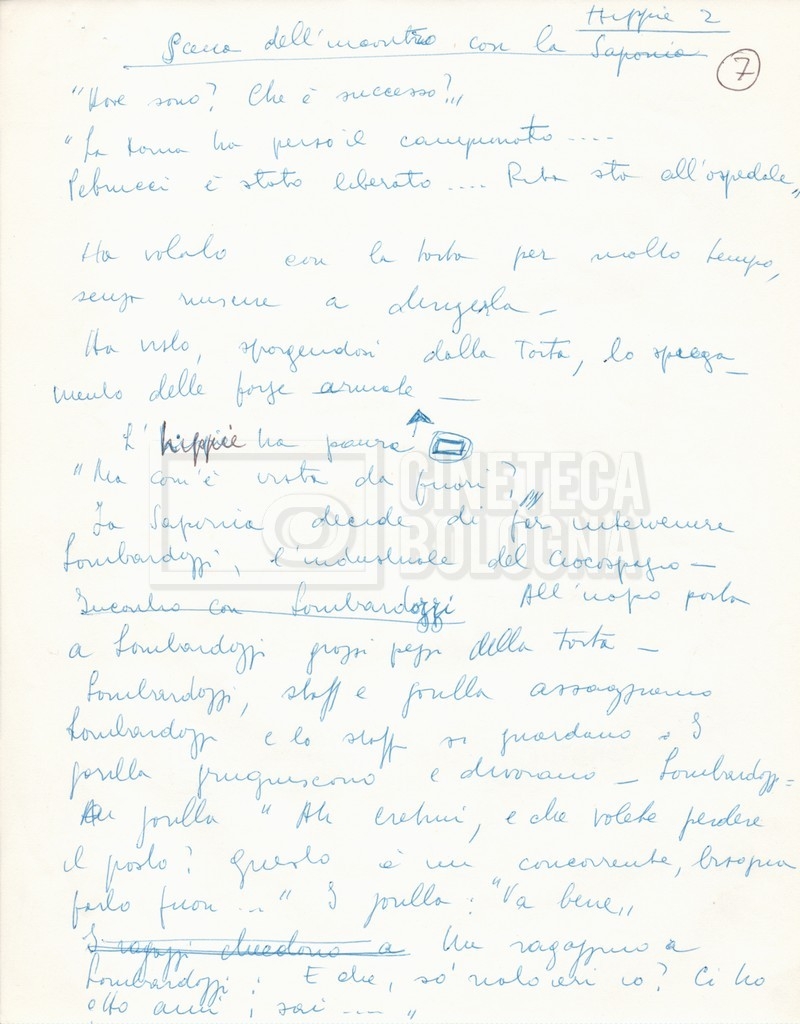 Hippie 2
Scena dell'incontro con la Saponia
7
"Dove sono? Che è successo?"
"La Roma ha perso il campionato ....
Petrucci è stato liberato .... Riva sta all'ospedale"
Ha volato con la torta per molto tempo,
senza riuscire a dirigerla –
Ha visto, sporgendosi dalla Torta, lo spiega-
mento delle forze armate –
L'hippie ha paura
"Ma com'è vista da fuori?"
La Saponia decide di far intervenire
Lombardozzi, l'industriale del Ciocospazio –
Incontro con Lombardozzi All'uopo porta
a Lombardozzi grossi pezzi della torta –
Lombardozzi, staff e gorilla assaggiano
Lombardozzi e lo staff si guardano = I
gorilla grugniscono e divorano – Lombardozzi =
Ai gorilla "Ah cretini, e che volete perdere
il posto? Questo è un concorrente, bisogna
farlo fuori ..." I gorilla: "Va bene"
I ragazzi chiedono a Un ragazzino a
Lombardozzi: E che, so' io? Ci ho
otto anni, sai ...."
CINETECA
BOLOGNA